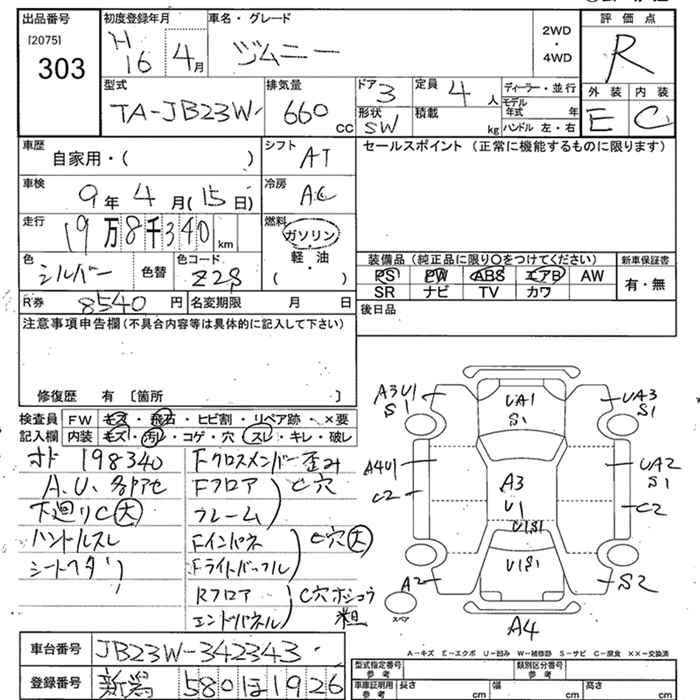 出品番号
[2075]
303
初度登録年月
H
16 4月
車名・グレード
ジムニー
2WD
・
4WD
評価点
R
外装 内装
E C
型式
TA-JB23W
排気量
660 cc
ドア 3
形状 SW
定員 4 人
積載 kg
ディーラー・並行
モデル
年式 年
ハンドル 左・右
車歴
自家用・( )
シフト
AT
セールスポイント (正常に機能するものに限ります)
車検
9年4月(15日)
冷房
AC
走行
19万8千340 km
燃料
ガソリン
・
軽油
・
( )
色
シルバー
色替
色コード
Z2S
装備品 (純正品に限り○をつけてください)
PS PW ABS エアB AW
SR ナビ TV カワ
新車保証書
有・無
R券 8540円
名変期限 月 日
後日品
注意事項申告欄(不具合内容等は具体的に記入して下さい)
修復歴 有 〔箇所 〕
検査員
記入欄
FW キズ・飛石・ヒビ割・リペア跡・×要
内装 キズ・汚レ・コゲ・穴・スレ・キレ・破レ
オド 198340
A.U.各アセ
下廻りC大
ハンドルスレ
シートヘタリ
Fクロスメンバー歪み
Fフロア
フレーム
C穴
Fインパネ
Fライトバッフル
C穴大
Rフロア
エンドパネル
C穴ホシュウ
粗
A3U1
S1
UA1
S1
UA3
S1
A4U1
C2
A3
U1
U1S1
UA2
S1
C2
U1S1
A2
S2
スペア
A4
A-キズ E-エクボ U-凹み W-補修跡 S-サビ C-腐食 XX-交換済
車台番号
JB23W-342343
登録番号
新潟 580 ほ 1926
型式指定番号
参考
類別区分番号
参考
車庫証明用
参考
長さ cm
幅 cm
高さ cm